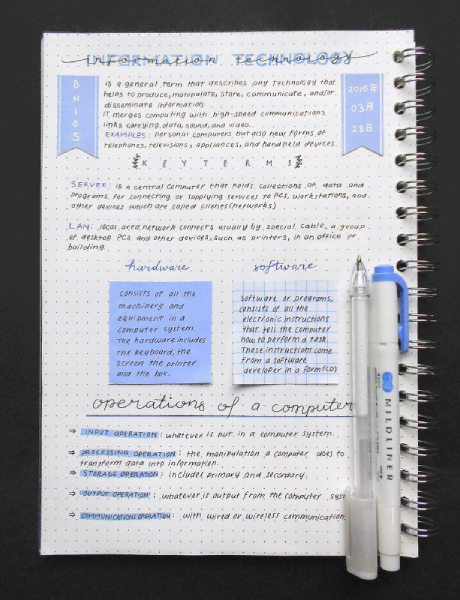 INFORMATION TECHNOLOGY
BNIOS
2016년
03月
28日
is a general term that describes any technology that
helps to produce, manipulate, store, communicate, and/or
disseminate information.
IT merges computing with high-speed communications
links carrying data, sound, and video.
EXAMPLES: personal computers but also new forms of
telephones, televisions, appliances, and handheld devices.
KEY TERMS
SERVER: is a central computer that holds collections of data and
programs for connecting or supplying services to PCs, workstations, and
other devices which are called clients (networks)
LAN: local area network connects usually by special cable, a group
of desktop PCs and other devices, such as printers, in an office or
building.
hardware
consists of all the
machinery and
equipment in a
computer system.
The hardware includes
the keyboard, the
screen the printer
and the box.
software
software or programs,
consists of all the
electronic instructions
that tell the computer
how to perform a task.
These instructions come
from a software
developer in a form (CD)
operations of a computer
⇒ INPUT OPERATION: whatever is put in a computer system.
⇒ PROCESSING OPERATION: the manipulation a computer does to
transform data into information.
⇒ STORAGE OPERATION: includes primary and secondary.
⇒ OUTPUT OPERATION: whatever is output from the computer syst
⇒ COMMUNICATIONS OPERATION: with wired or wireless communication
MILDLINER